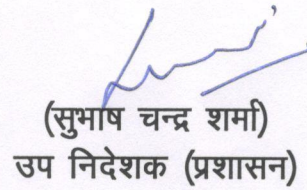 (सुभाष चन्द्र शर्मा)
उप निदेशक (प्रशासन)